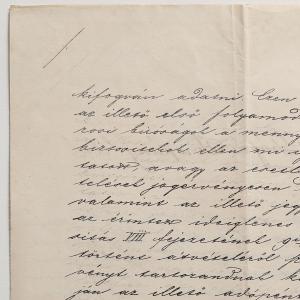 kifogván adatni Ezen
az illető első folyamod
rosi bíróságot a menny
birtositekot ellen mi
avagy az esetle
telését jogérvényesen
valamint az illető jegy
az érintett ideiglenes
sitás VIII fejezetének
történt átvételéről
vényt tartozandnak
ján az illető adópénz